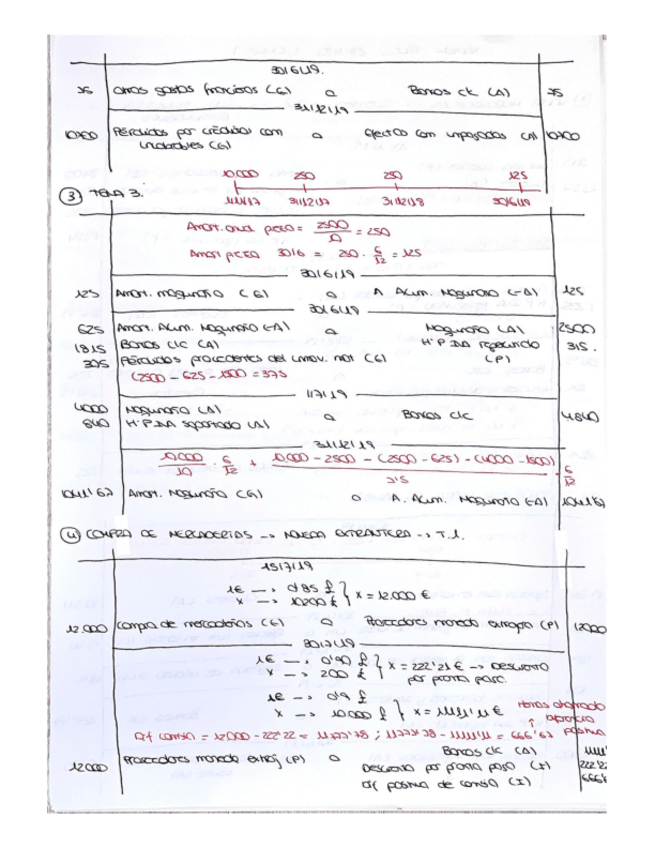 30/6/19.
75 Otros gastos financieros (G) a Bancos c/c (A) 75
31/12/19
10.000 Pérdidas por créditos com a Efectos com impagados (A) 10.000
incobrables (G)
10.000 250 250 125
③ TEMA 3. 1/1/17 31/12/17 31/12/18 30/6/19
Amort. anual pieza = 2500/10 = 250
Amort pieza 30/6 = 250 · 6/12 = 125
30/6/19
125 Amort. maquinaria (G) a A. Acum. Maquinaria (-A) 125
30/6/19
625 Amort. Acum. Maquinaria (-A) a Maquinaria (A) 2500
1815 Bancos c/c (A) H.P. IVA repercutido 315.
375 Pérdidas procedentes del inmov. mat (G) (P)
(2500 - 625 - 1500 = 375
1/7/19
4000 Maquinaria (A) a Bancos c/c 4.840
840 H.P. IVA soportado (A)
31/12/19
10.000/10 · 6/12 + 10.000 - 2500 - (2500 - 625) - (4000 - 1500)/7'5 · 6/12
1041'67 Amort. Maquinaria (G) a A. Acum. Maquinaria (-A) 1041'67
④ COMPRA DE MERCADERÍAS -> MONEDA EXTRANJERA -> T.1.
15/7/19
1€ -> 0'85 £
x -> 10200 £ } x = 12.000 €
12.000 Compra de mercaderías (G) a Proveedores moneda extranjera (P) 12000
30/7/19
1€ -> 0'90 £
x -> 200 £ } x = 222'22 € -> Descuento
por pronto pago.
1€ -> 0'9 £
x -> 10.000 £ } x = 11.111'11 € Hemos ahorrado
diferencia
positiva
Dif cambio = 12.000 - 222'22 = 11.777'78 ; 11.777'78 - 11.111'11 = 666'67
12.000 Proveedores moneda extranj (P) a Bancos c/c (A) 11.111'
Descuento por pronto pago (I) 222'22
Dif positiva de cambio (I) 666'6